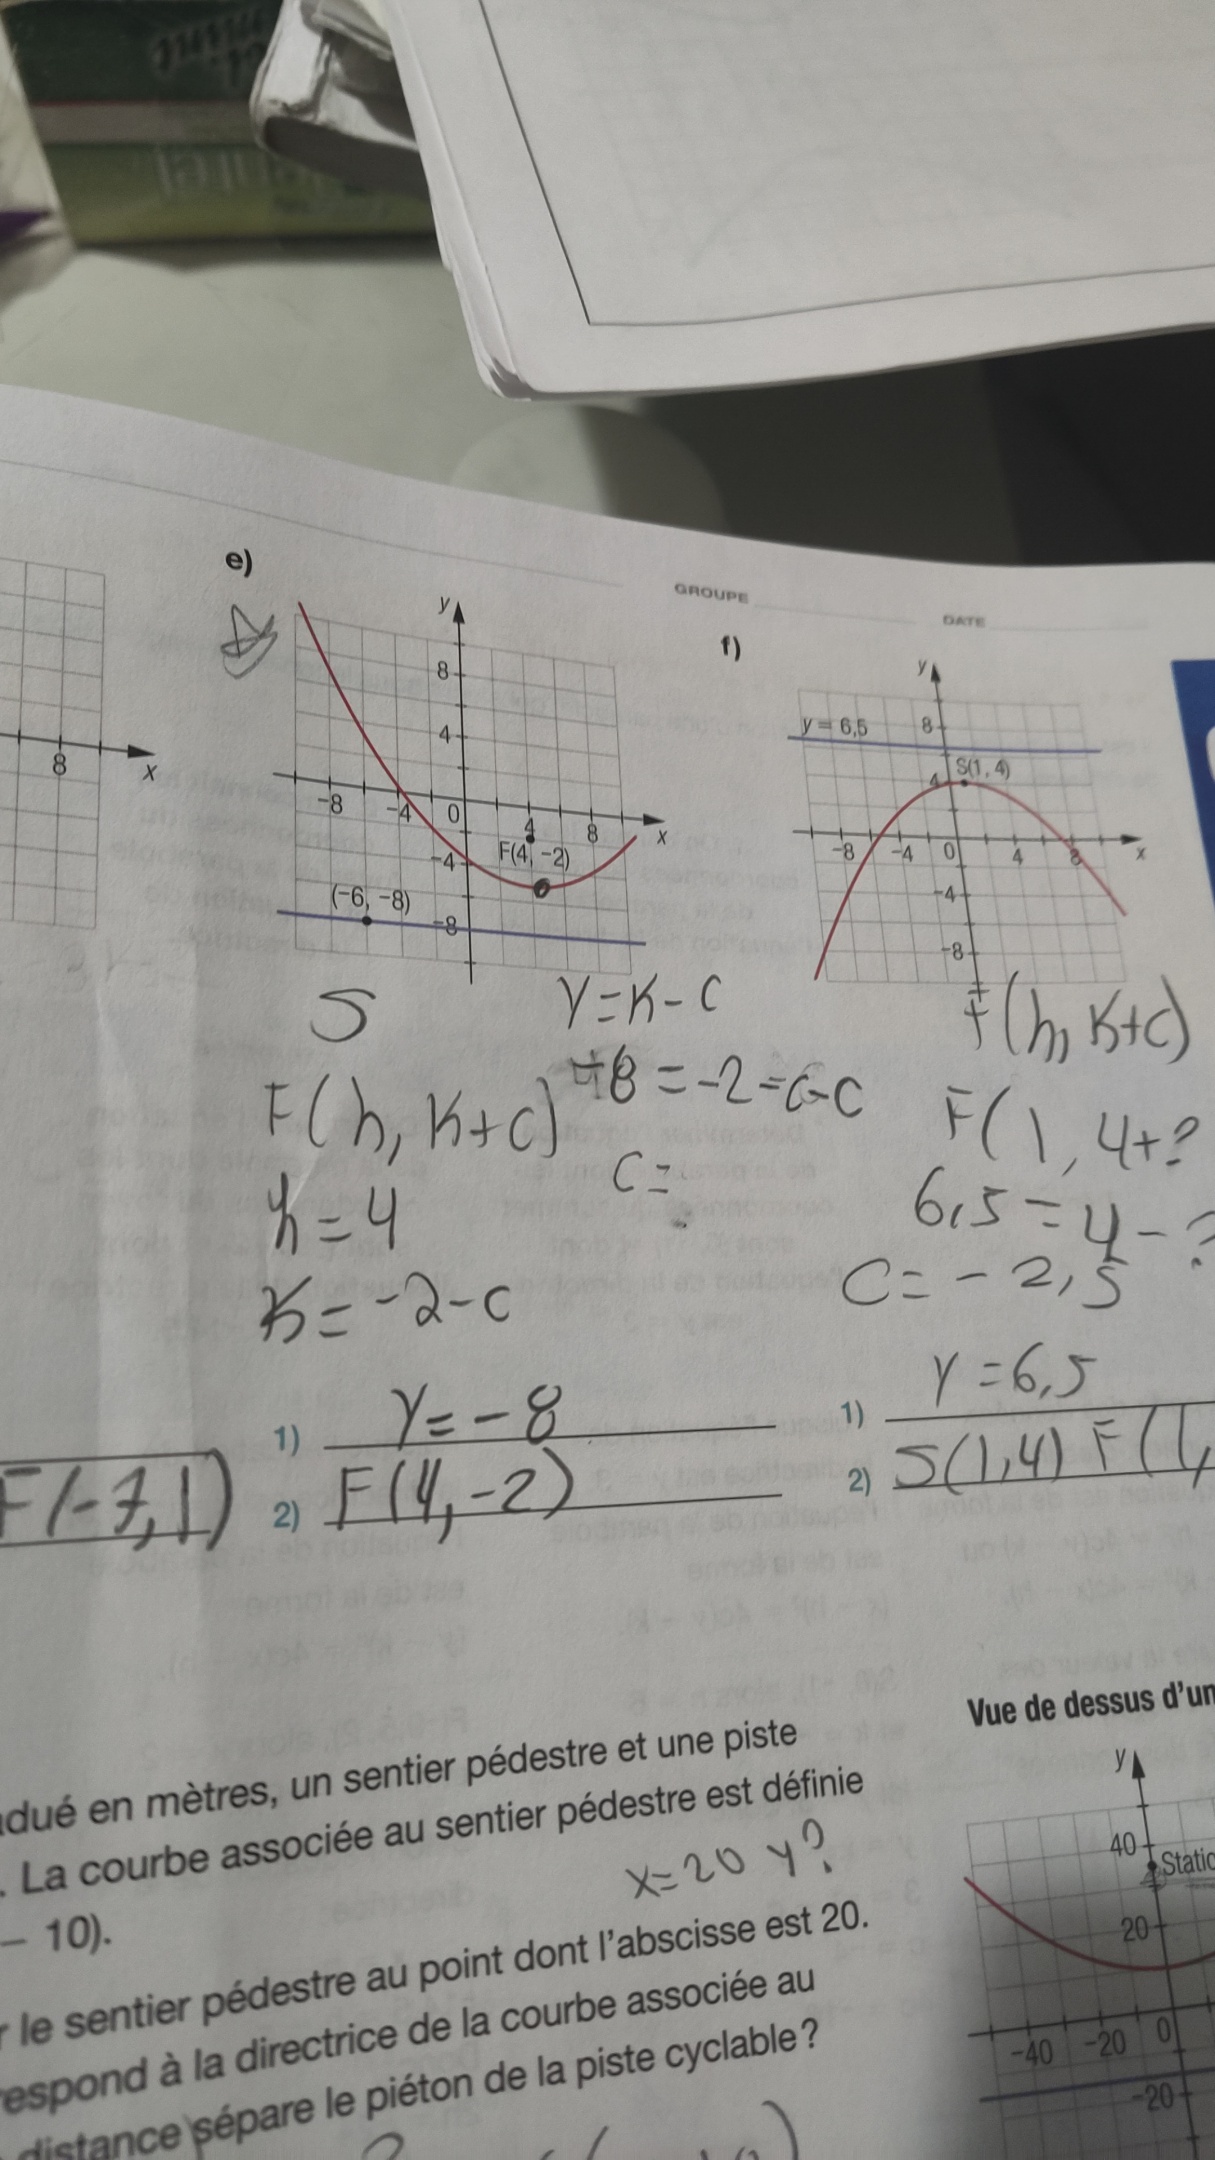 e)
GROUPE
DATE
f)
y
8
4
-8
-4
0
4
8
x
F(4, -2)
-4
(-6, -8)
-8
8
x
y
y = 6,5
8
S(1, 4)
4
-8
-4
0
4
8
x
-4
-8
S
y = K - C
F(h, K+C)
F(h, K+C)
C =
F(1, 4+?
h = 4
6,5 = 4 - ?
K = -2 - C
C = -2,5
1) y = -8
1) y = 6,5
F(-7, 1)
2) F(4, -2)
2) S(1,4) F(1,
Vue de dessus d'un
adué en mètres, un sentier pédestre et une piste
. La courbe associée au sentier pédestre est définie
x = 20 y?
– 10).
r le sentier pédestre au point dont l'abscisse est 20.
respond à la directrice de la courbe associée au
distance sépare le piéton de la piste cyclable?
y
40
Static
20
-40
-20
0
-20